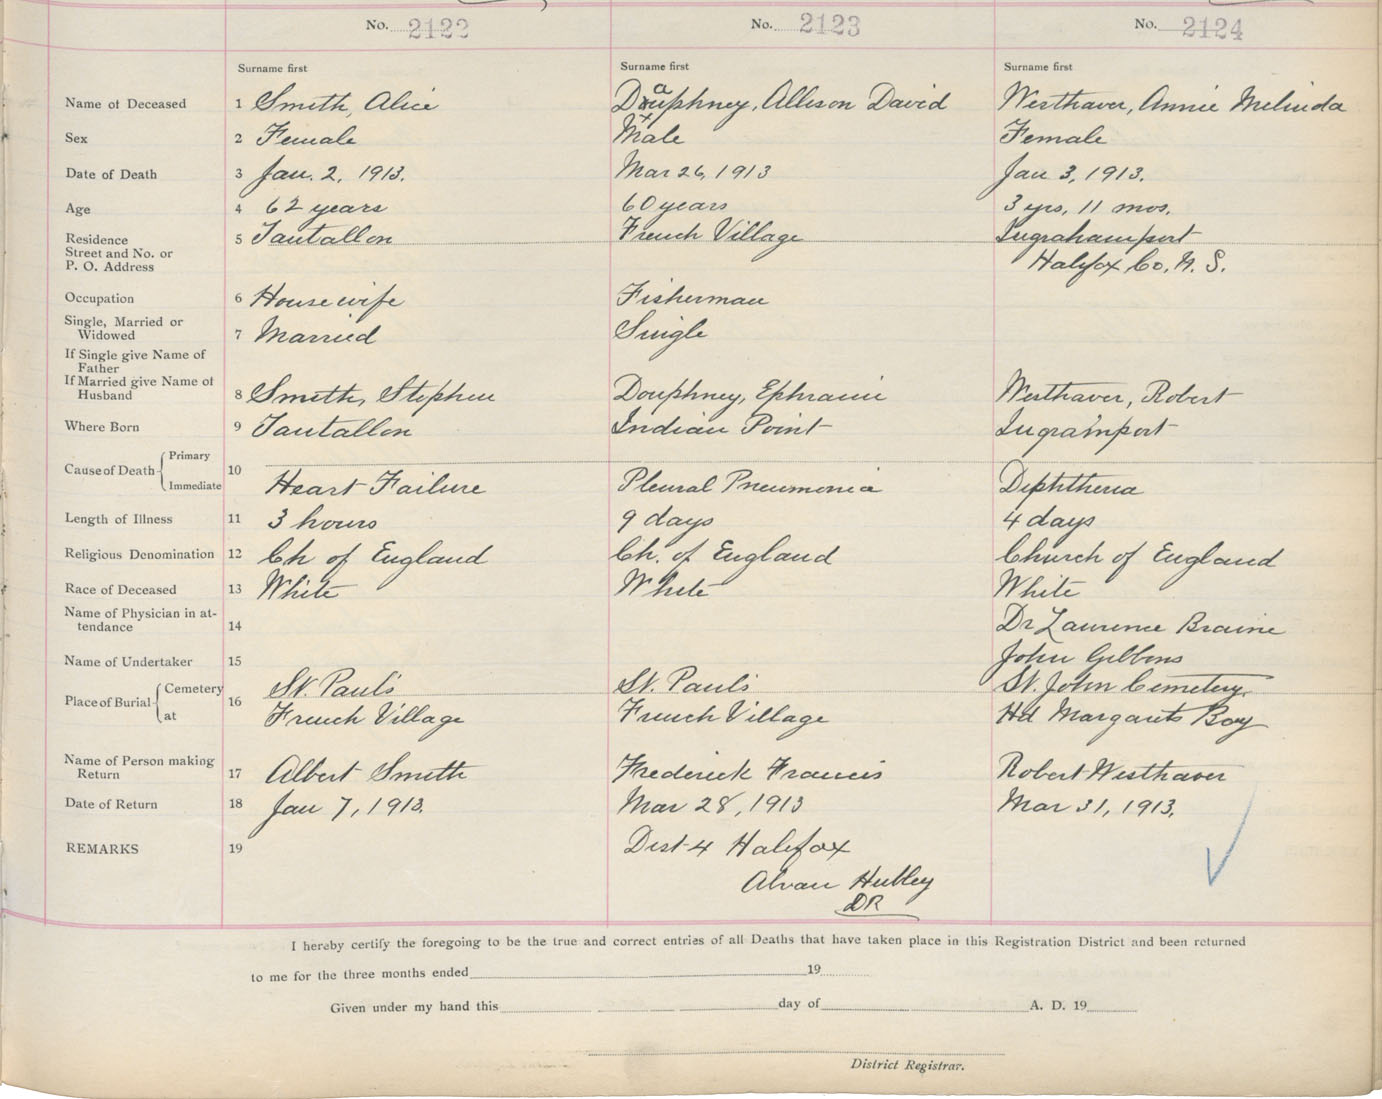 No. 2122 No. 2123 No. 2124
Surname first Surname first Surname first
Name of Deceased 1 Smith, Alice Dauphney, Allison David Westhaver, Annie Melinda
Sex 2 Female Male Female
Date of Death 3 Jan. 2, 1913. Mar 26, 1913 Jan 3, 1913.
Age 4 62 years 60 years 3 yrs, 11 mos.
Residence 5 Tantallon French Village Ingrahamport
Street and No. or
P. O. Address Halifax Co. N. S.
Occupation 6 Housewife Fisherman
Single, Married or
Widowed 7 Married Single
If Single give Name of
Father
If Married give Name of
Husband 8 Smith, Stephen Douphney, Ephraim Westhaver, Robert
Where Born 9 Tantallon Indian Point Ingramport
Cause of Death Primary 10
Immediate Heart Failure Pleural Pneumonia Diphtheria
Length of Illness 11 3 hours 9 days 4 days
Religious Denomination 12 Ch of England Ch. of England Church of England
Race of Deceased 13 White White White
Name of Physician in at-
tendance 14 Dr Laurence Braine
Name of Undertaker 15 John Gibbons
Place of Burial Cemetery 16 St. Paul's St. Paul's St. John Cemetery,
at French Village French Village Hd Margarets Bay
Name of Person making
Return 17 Albert Smith Frederick Francis Robert Westhaver
Date of Return 18 Jan 7, 1913. Mar 28, 1913 Mar 31, 1913.
REMARKS 19 Dist 4 Halifax
Alvan Hubley
DR
I hereby certify the foregoing to be the true and correct entries of all Deaths that have taken place in this Registration District and been returned
to me for the three months ended 19
Given under my hand this day of A. D. 19
District Registrar.